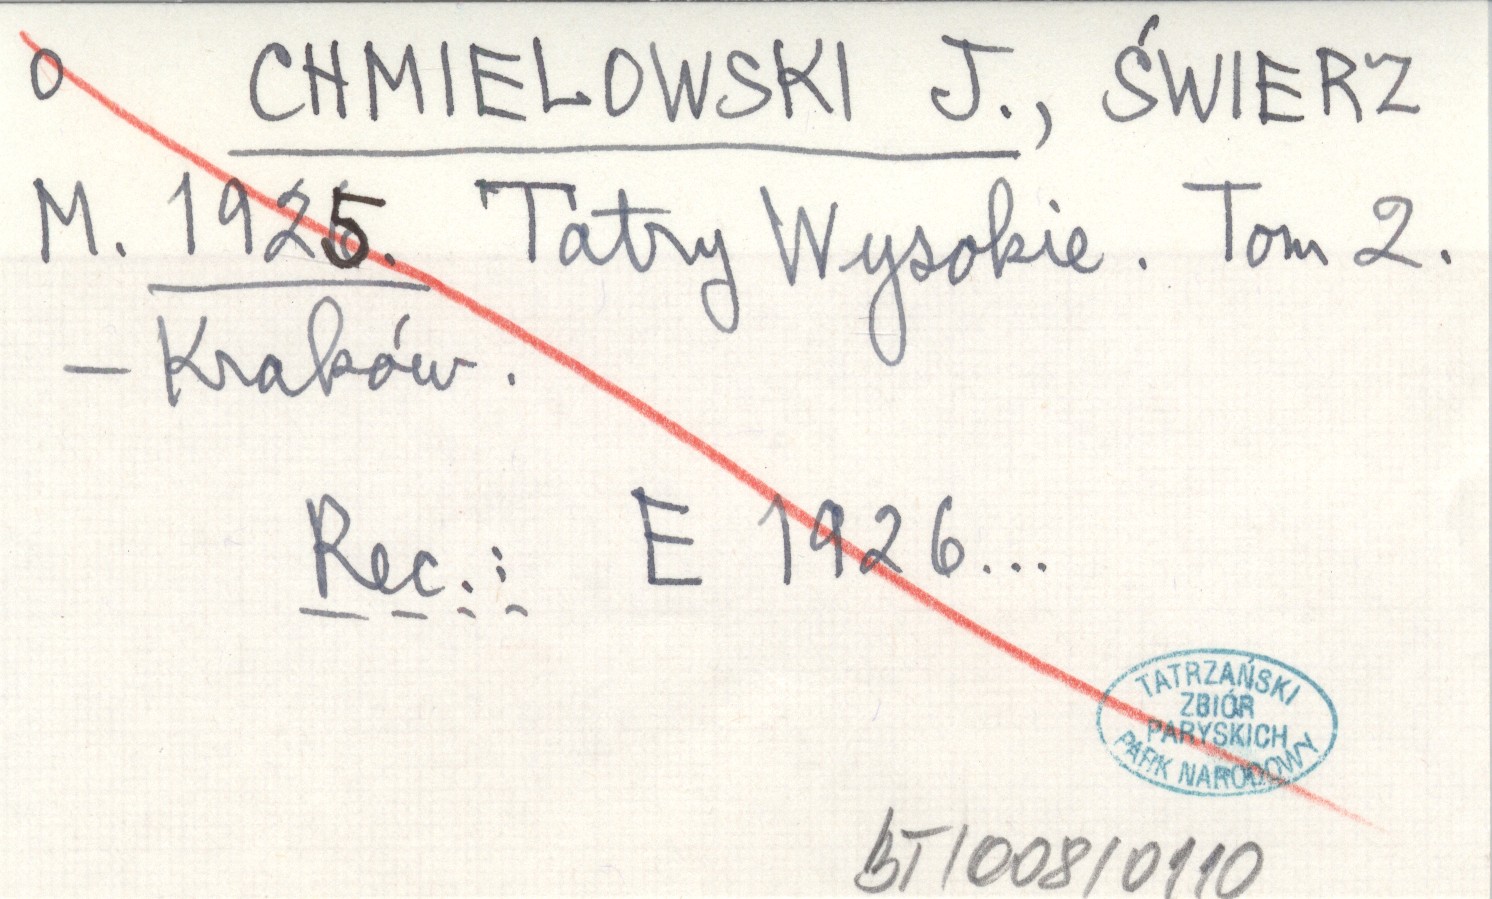 O CHMIELOWSKI J., ŚWIERZ
M. 1925. Tatry Wysokie. Tom 2.
– Kraków.
Rec.: E 1926...
TATRZAŃSKI
ZBIÓR
PARYSKICH
PARK NARODOWY
BT/008/0110